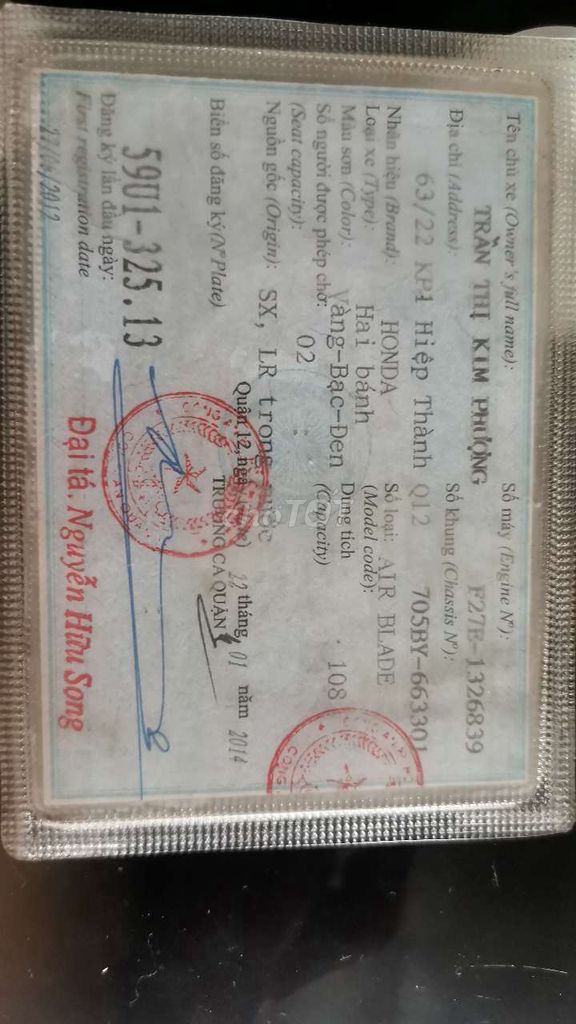 Tên chủ xe (Owner's full name): Số máy (Engine Nº):
TRẦN THỊ KIM PHƯỢNG F27E-1326839
Địa chỉ (Address): Số khung (Chassis Nº):
63/22 KP1 Hiệp Thành Q12 705BY-663301
Nhãn hiệu (Brand): HONDA Số loại: AIR BLADE
Loại xe (Type): Hai bánh (Model code):
Màu sơn (Color): Vàng-Bạc-Đen Dung tích 108
Số người được phép chở: 02 (Capacity)
(Seat capacity):
Nguồn gốc (Origin): SX, LR trong
Quận 12, 22 tháng 01 năm 2014
Biển số đăng ký (Nº Plate) TRƯỞNG CA QUẬN
59U1-325.13
Đăng ký lần đầu ngày:
First registration date
Đại tá. Nguyễn Hữu Song